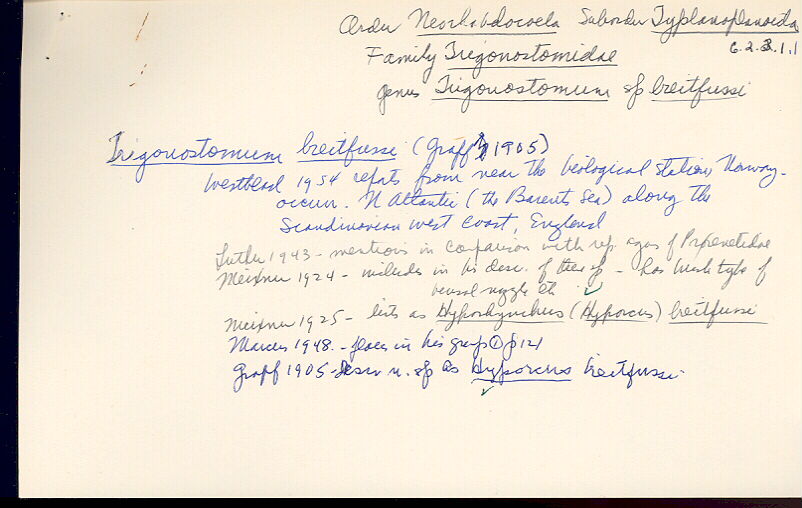 Order Neorhabdocoela Suborder Typhloplanoida
6.2.3.1.1
Family Trigonostomidae
genus Trigonostomum sp breitfussi
Trigonostomum breitfussi (Graff 1905)
Westblad 1954 reports from near the biological station, Norway.
occur. N Atlantic (the Barents Sea) along the
Scandinavian west coast, England
Luther 1943 - mentions in comparison with rep. of
Meixner 1924 - includes in his desc. of these sp - has type of
bursal nozzle
Meixner 1925 - lists as Hyporhynchus (Hyporcus) breitfussi
Marcus 1948 - places in his group 1 p 121
Graff 1905 - descr n. sp as Hyporcus breitfussi